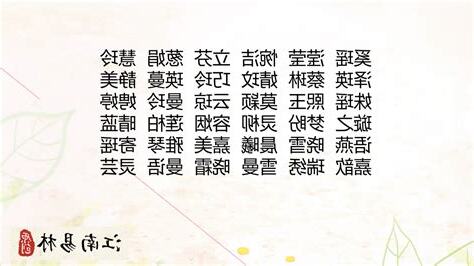 奚瑶 滢莹 惋洁 立芬 葱娟 慧玲
泽瑛 蔡琳 婧玟 巧玲 瑛蔓 静美
姝瑶 熙王 莫颖 云琼 曼玲 娉婷
璇之 梦盼 灵柳 容烟 莲柏 晴蓝
语燕 晓雪 晨曦 嘉美 雅琴 寄瑶
嘉歆 瑞绣 雪曼 晓霜 曼语 灵芸
江南易林